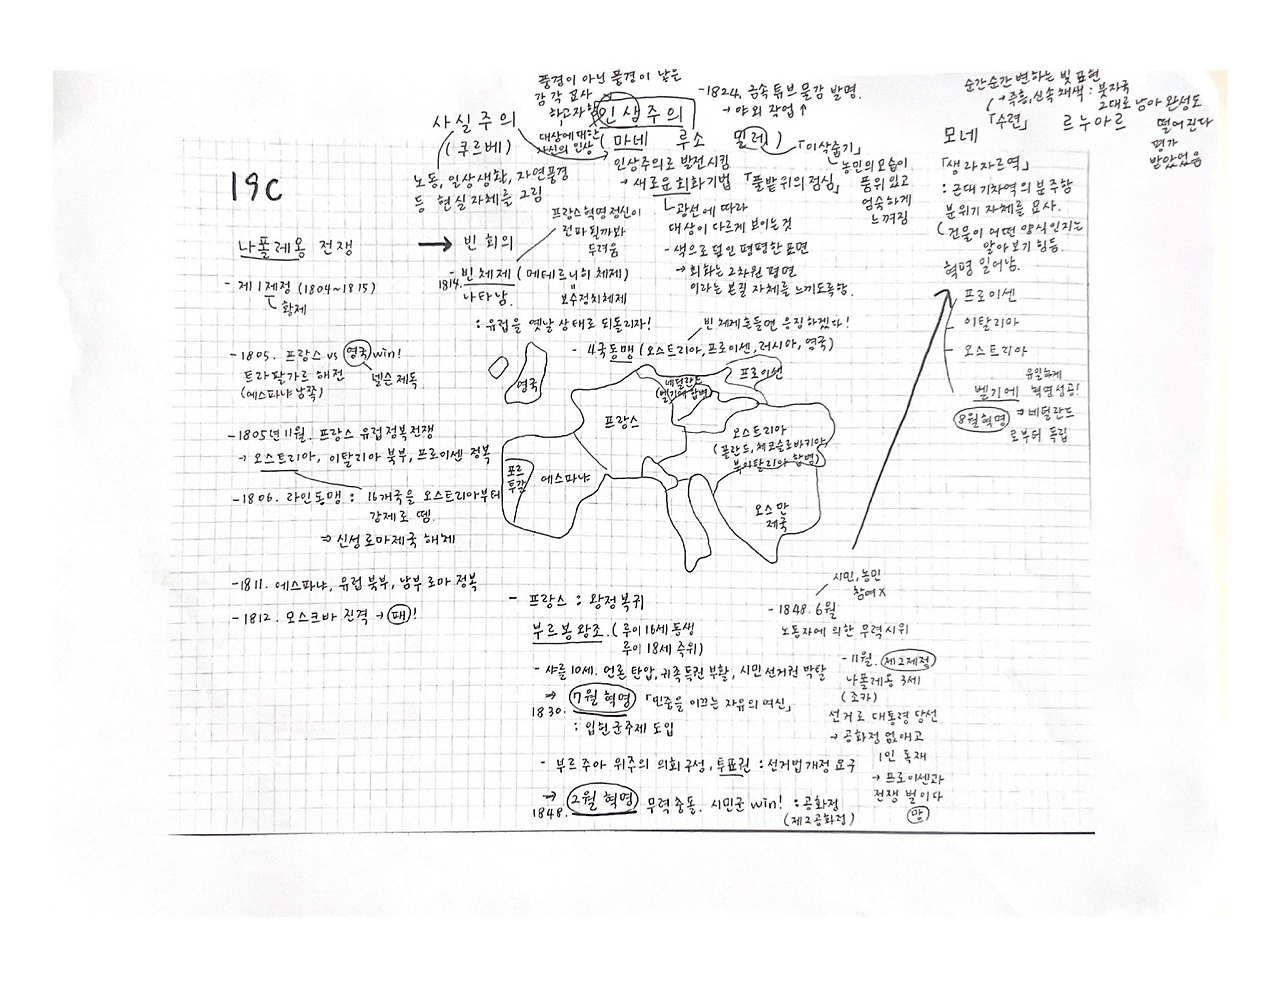 19C
나폴레옹 전쟁
- 제1제정 (1804~1815)
황제
- 1805. 프랑스 vs 영국 win!
트라팔가르 해전
넬슨 제독
(에스파냐 남쪽)
- 1805년 11월. 프랑스 유럽정복전쟁
→ 오스트리아, 이탈리아 북부, 프로이센 정복
- 1806. 라인동맹 : 16개국을 오스트리아부터
강제로 뗌.
⇒ 신성로마제국 해체
- 1811. 에스파냐, 유럽 북부, 남부 로마 정복
- 1812. 모스크바 진격 → 패!
사실주의
(쿠르베)
노동, 일상생활, 자연풍경
등 현실 자체를 그림
풍경이 아닌 풍경이 낳은
감각 묘사
하고자함
대상에 대한
자신의 인상
인상주의
(마네 루소 밀레)
인상주의로 발전시킴
→ 새로운 회화기법
광선에 따라
대상이 다르게 보이는 것
- 색으로 덮인 평평한 표면
→ 회화는 2차원 평면
이라는 본질 자체를 느끼도록함.
- 1824. 금속튜브물감 발명.
→ 야외 작업↑
「이삭줍기」
「풀밭위의 점심」
농민의 모습이
품위있고
엄숙하게
느껴짐
순간순간 변하는 빛 표현
→ 즉흥, 신속 채색 : 붓자국
그대로 남아 완성도
떨어진다
평가
받았었음
모네
「수련」
르누아르
「생라자르역」
: 근대 기차역의 분주함
분위기 자체를 묘사.
(건물이 어떤 양식인지는
알아보기 힘듦.
→ 빈 회의
프랑스혁명 정신이
전파될까봐
두려움
- 빈 체제 (메테르니히 체제)
1814.
나타남.
보수정치체제
: 유럽을 옛날 상태로 되돌리자!
빈 체제 흔들면 응징하겠다!
- 4국동맹 (오스트리아, 프로이센, 러시아, 영국)
영국
네덜란드
(벨기에 합병)
프로이센
프랑스
오스트리아
(폴란드, 체코슬로바키아,
북이탈리아 합병)
포르
투갈
에스파냐
오스만
제국
혁명 일어남.
프로이센
이탈리아
오스트리아
유일하게
벨기에 혁명성공!
8월혁명 ⇒ 네덜란드
로부터 독립
- 프랑스 : 왕정복귀
부르봉왕조. (루이 16세 동생
루이 18세 즉위)
- 샤를 10세. 언론 탄압, 귀족특권 부활, 시민 선거권 박탈
⇒ 7월 혁명 「민중을 이끄는 자유의 여신」
1830.
: 입헌군주제 도입
- 부르주아 위주의 의회구성, 투표권 : 선거법개정 요구
⇒ 2월 혁명 무력충돌. 시민군 win! : 공화정
1848.
(제2공화정)
시민, 농민
참여 X
- 1848. 6월
노동자에 의한 무력시위
- 11월. 제2제정
나폴레옹 3세
(조카)
선거로 대통령 당선
→ 공화정 없애고
1인 독재
→ 프로이센과
전쟁 벌이다
망